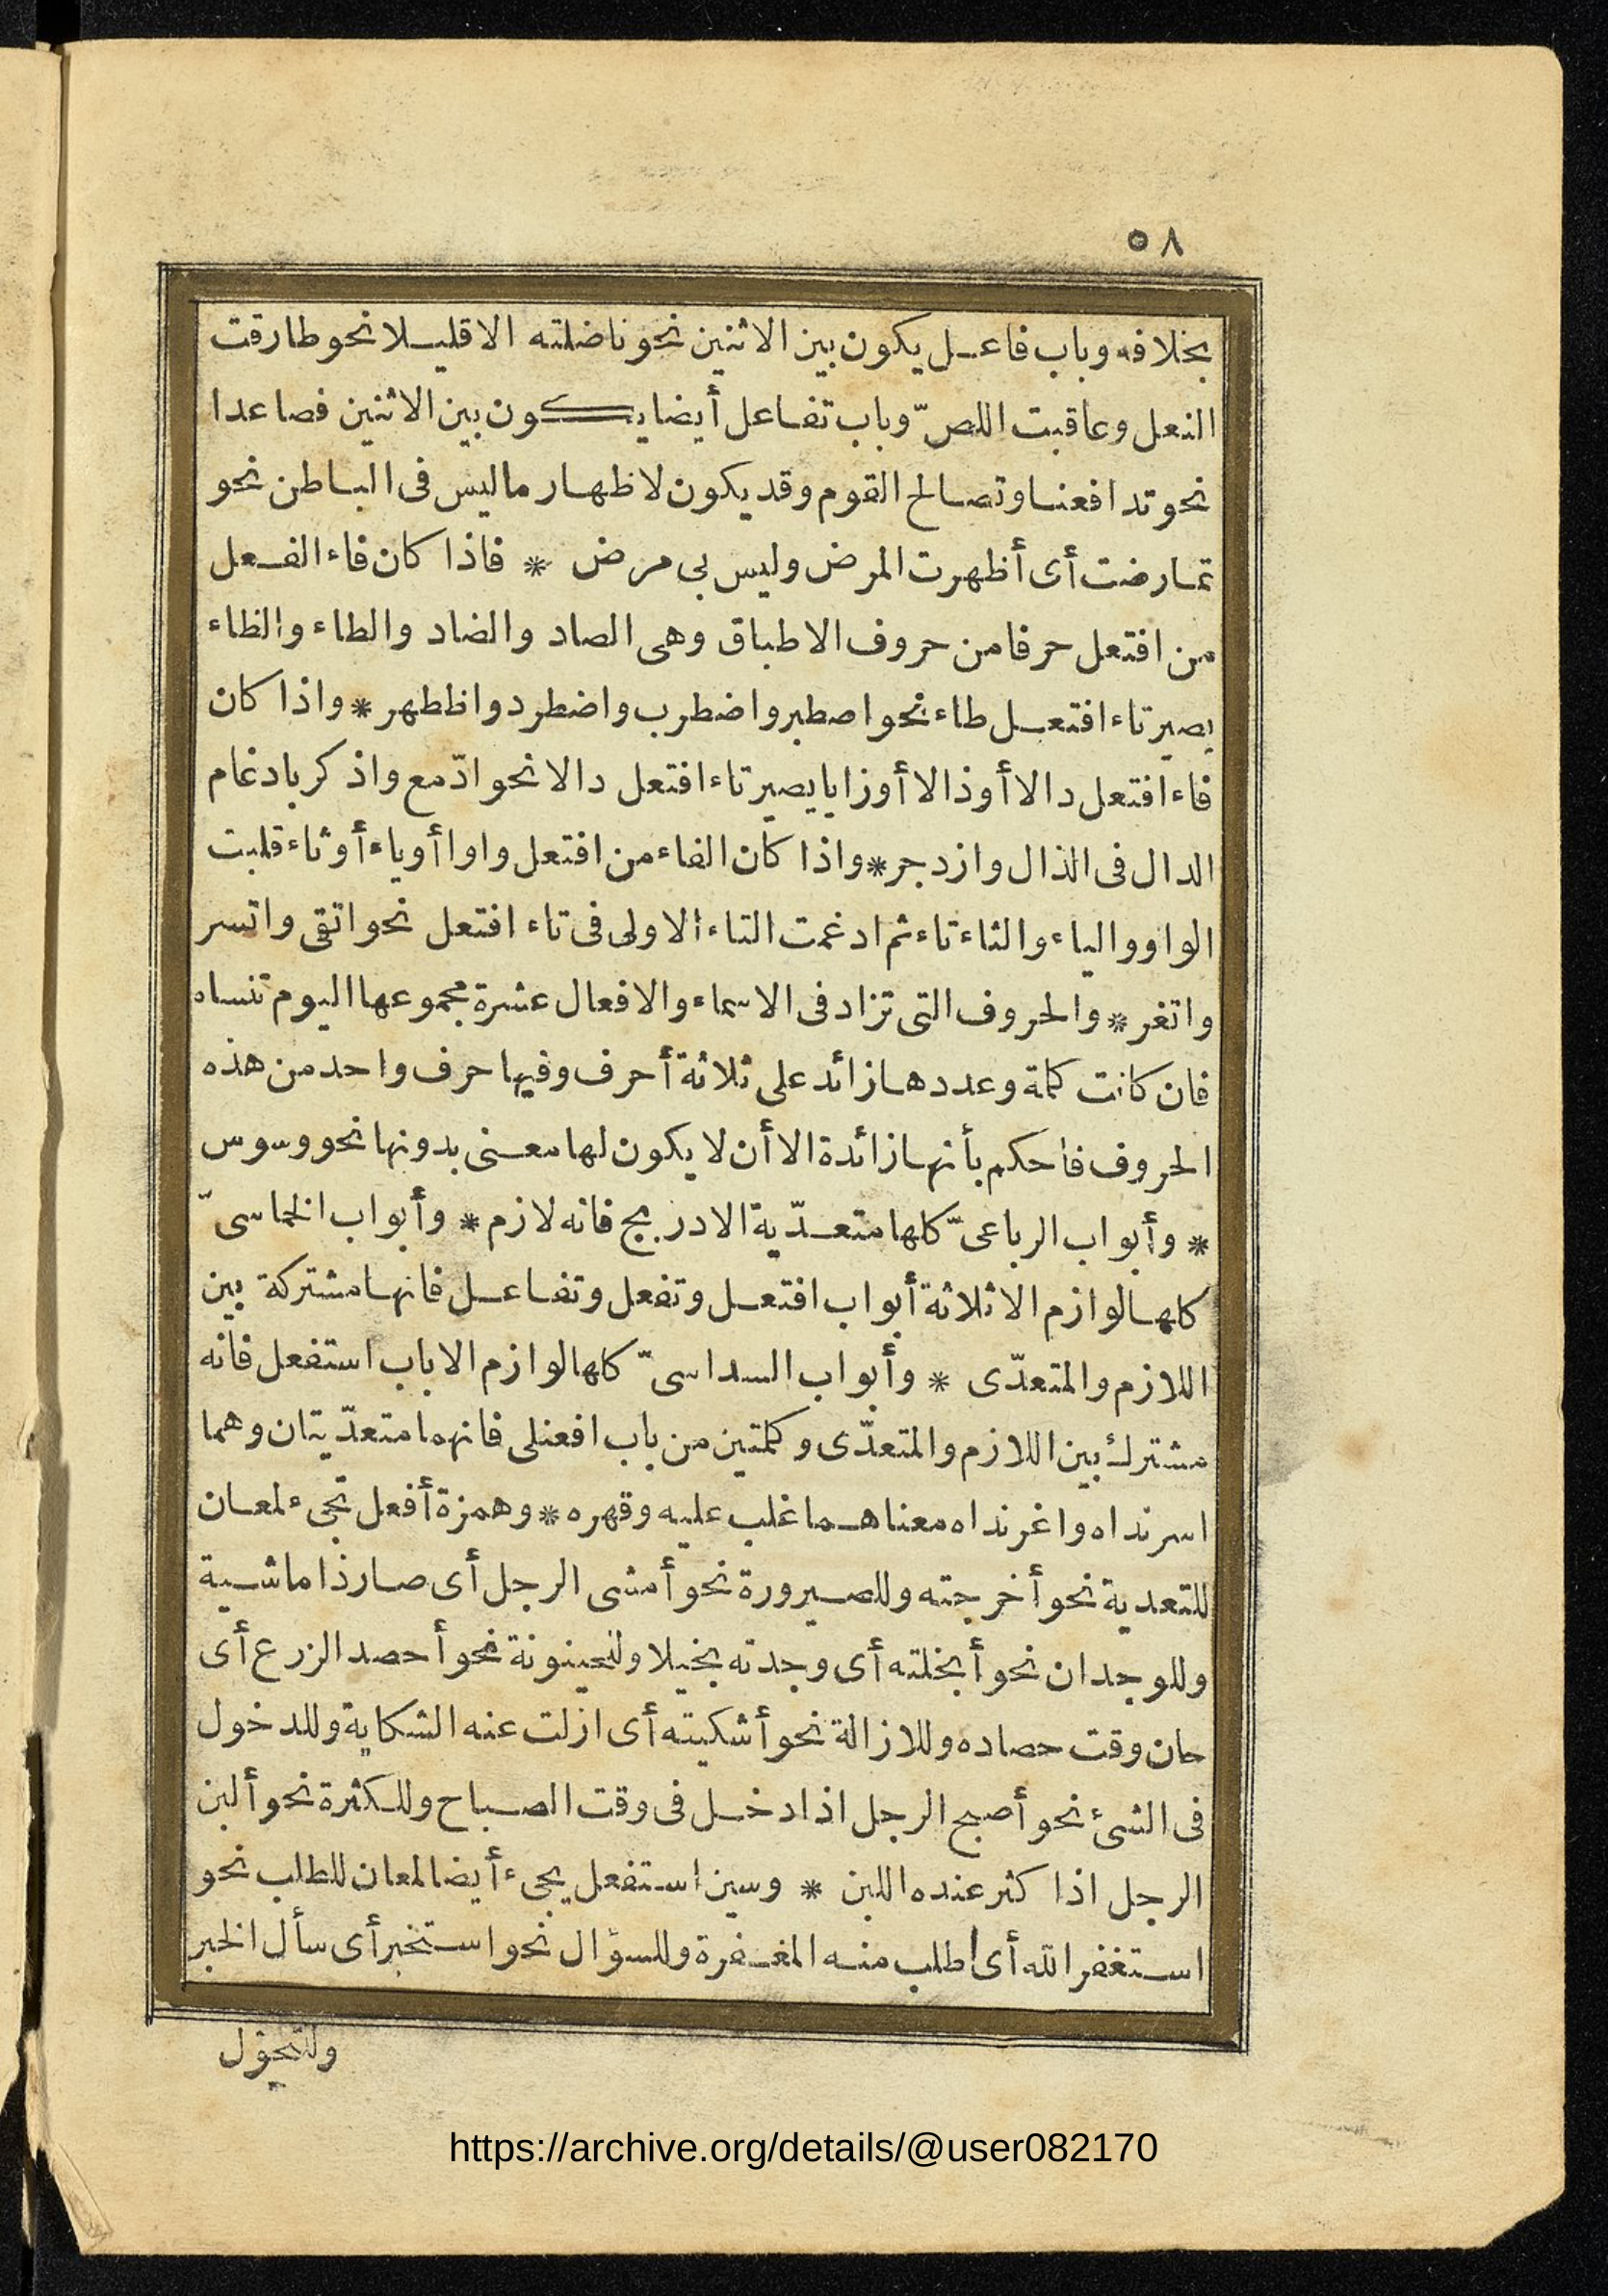 ٥٨
بخلافه وباب فاعل يكون بين الاثنين نحو ناضلته الا قليلا نحو طارقت
النعل وعاقبت اللصّ وباب تفاعل أيضا يكون بين الاثنين فصاعدا
نحو تدافعنا وتصالح القوم وقد يكون لاظهار ماليس فى الباطن نحو
تمارضت أى أظهرت المرض وليس بى مرض * فاذا كان فاء الفعل
من افتعل حرفا من حروف الاطباق وهى الصاد والضاد والطاء والظاء
يصير تاء افتعل طاء نحو اصطبر واضطرب واضطرد واظطهر * واذا كان
فاء افتعل دالا أو ذالا أو زايا يصير تاء افتعل دالا نحو ادّمع واذ كر بادغام
الدال فى الذال وازدجر * واذا كان الفاء من افتعل واوا أو ياء أو ثاء قلبت
الواو والياء والثاء تاء ثم ادغمت التاء الاولى فى تاء افتعل نحو اتقى واتسر
واتغر * والحروف التى تزاد فى الاسماء والافعال عشرة مجموعها اليوم تنساه
فان كانت كلمة وعددها زائد على ثلاثة أحرف وفيها حرف واحد من هذه
الحروف فاحكم بأنها زائدة الا أن لا يكون لها معنى بدونها نحو وسوس
* وأبواب الرباعىّ كلها متعدّية الا دربج فانه لازم * وأبواب الخماسىّ
كلها لوازم الا ثلاثة أبواب افتعل وتفعل وتفاعل فانها مشتركة بين
اللازم والمتعدّى * وأبواب السداسىّ كلها لوازم الا باب استفعل فانه
مشترك بين اللازم والمتعدّى وكلمتين من باب افعنلى فانهما متعدّيتان وهما
اسرنداه واغرنداه معناهما غلب عليه وقهره * وهمزة أفعل تجىء لمعان
للتعدية نحو أخرجته وللصيرورة نحو أمشى الرجل أى صار ذا ماشية
وللوجدان نحو أبخلته أى وجدته بخيلا وللحينونة نحو أحصد الزرع أى
حان وقت حصاده وللازالة نحو أشكيته أى ازلت عنه الشكاية وللدخول
فى الشئ نحو أصبح الرجل اذا دخل فى وقت الصباح وللكثرة نحو ألبن
الرجل اذا كثر عنده اللبن * وسين استفعل يجىء أيضا لمعان للطلب نحو
استغفر الله أى اطلب منه المغفرة وللسؤال نحو استخبر أى سأل الخبر
وللتحوّل
https://archive.org/details/@user082170